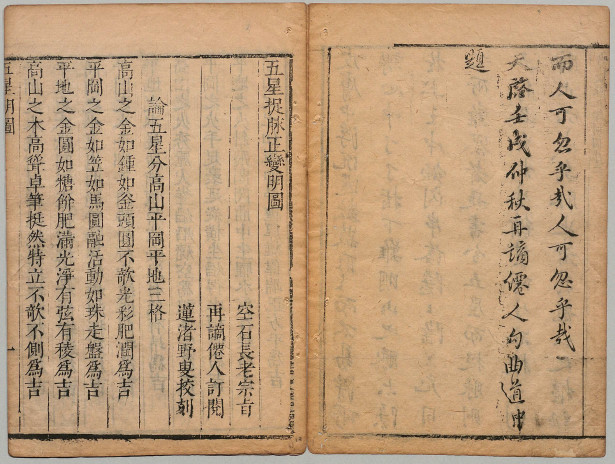 而人可忽乎哉人可忽乎哉
天啓壬戌仲秋再謫僊人句曲道中
題
五星捉脉正變明圖
空石長老宗旨
再謫僊人訂閱
蓮渚野叟挍刻
論五星分高山平岡平地三格
高山之金如鍾如金頭圓不欹光彩肥潤爲吉
平岡之金如笠如馬圓融活動如珠走盤爲吉
平地之金圓如糖餅肥滿光淨有弦有稜爲吉
高山之木高聳卓筆挺然特立不欹不側爲吉
五星明圖
一